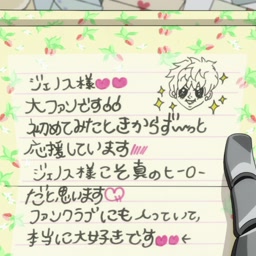 ジェノス様♥♥
大ファンです
初めてみたときからず〜っと
応援しています
ジェノス様こそ真のヒーロー
だと思います
ファンクラブにも入っていて、
本当に大好きです♥♥